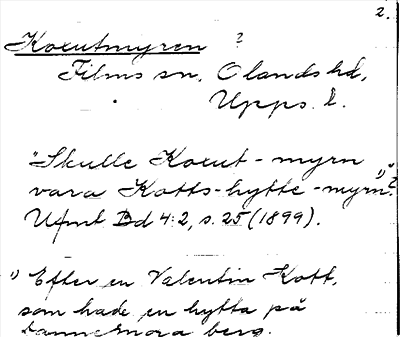 2.
Koxutmyren ?
Films sn, Olands hd,
Upps. l.
"Skulle Koxut-myrn
vara Kotts-hytte-myrn"¹)?
Ufmt Bd 4:2, s. 25 (1899).
¹) Efter en Valentin Kott,
som hade en hytta på
Dannemora berg.